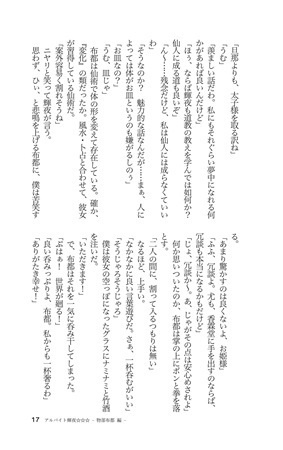 「旦那よりも、太子様を取る訳ね」
「うむ」
「羨ましい話だわ。私にもそれぐらい夢中になれる何
かがあれば良いんだけど」
「ほう、ならば輝夜も道教の教えを学んでは如何か？
仙人に成る道も良いぞ」
「ん〜……残念だけど、私は仙人には成らなくていい
わ」
「そうなのか？　魅力的な話なんだが……まぁ、人に
よっては体がお皿というのも嫌がるしのぅ」
「お皿なの？」
「うむ、皿じゃ」
　布都は仙術で体の形を変えて存在している。確か、
『変化』の類だったか。風水・卜占と合わせて、彼女
が習得している術だ。
「案外容易く割れそうね」
　ニヤリと笑って輝夜が言う。
　思わず、ひぃ、と悲鳴を上げる布都に、僕は苦笑す
る。
「あまり驚かすのは良くないよ、お姫様」
「ふふ、冗談よ。尤も、香霖堂に手を出すのならば、
冗談も本当になるかもだけど」
「じょ、冗談か〜。あ、じゃがその点は安心めされよ」
　何か思いついたのか、布都は掌の上にポンと拳を落
とす。
「二人の間に、割って入るつもりは無い」
　なるほど、上手い。
「なかなかに良い言葉遊びだ。さぁ、一杯呑むがいい」
「そうじゃろそうじゃろ」
　僕は彼女の空っぽになったグラスにナミナミと丹酒
を注いだ。
「いただきます！」
　で、布都はそれを一気に呑み干してしまった。
「ぷはぁ！　世界が廻る！」
「良い呑みっぷりよ、布都。私からも一杯奢るわ」
「ありがたき幸せ！」
17　アルバイト輝夜☆☆☆ - 物部布都 編 -